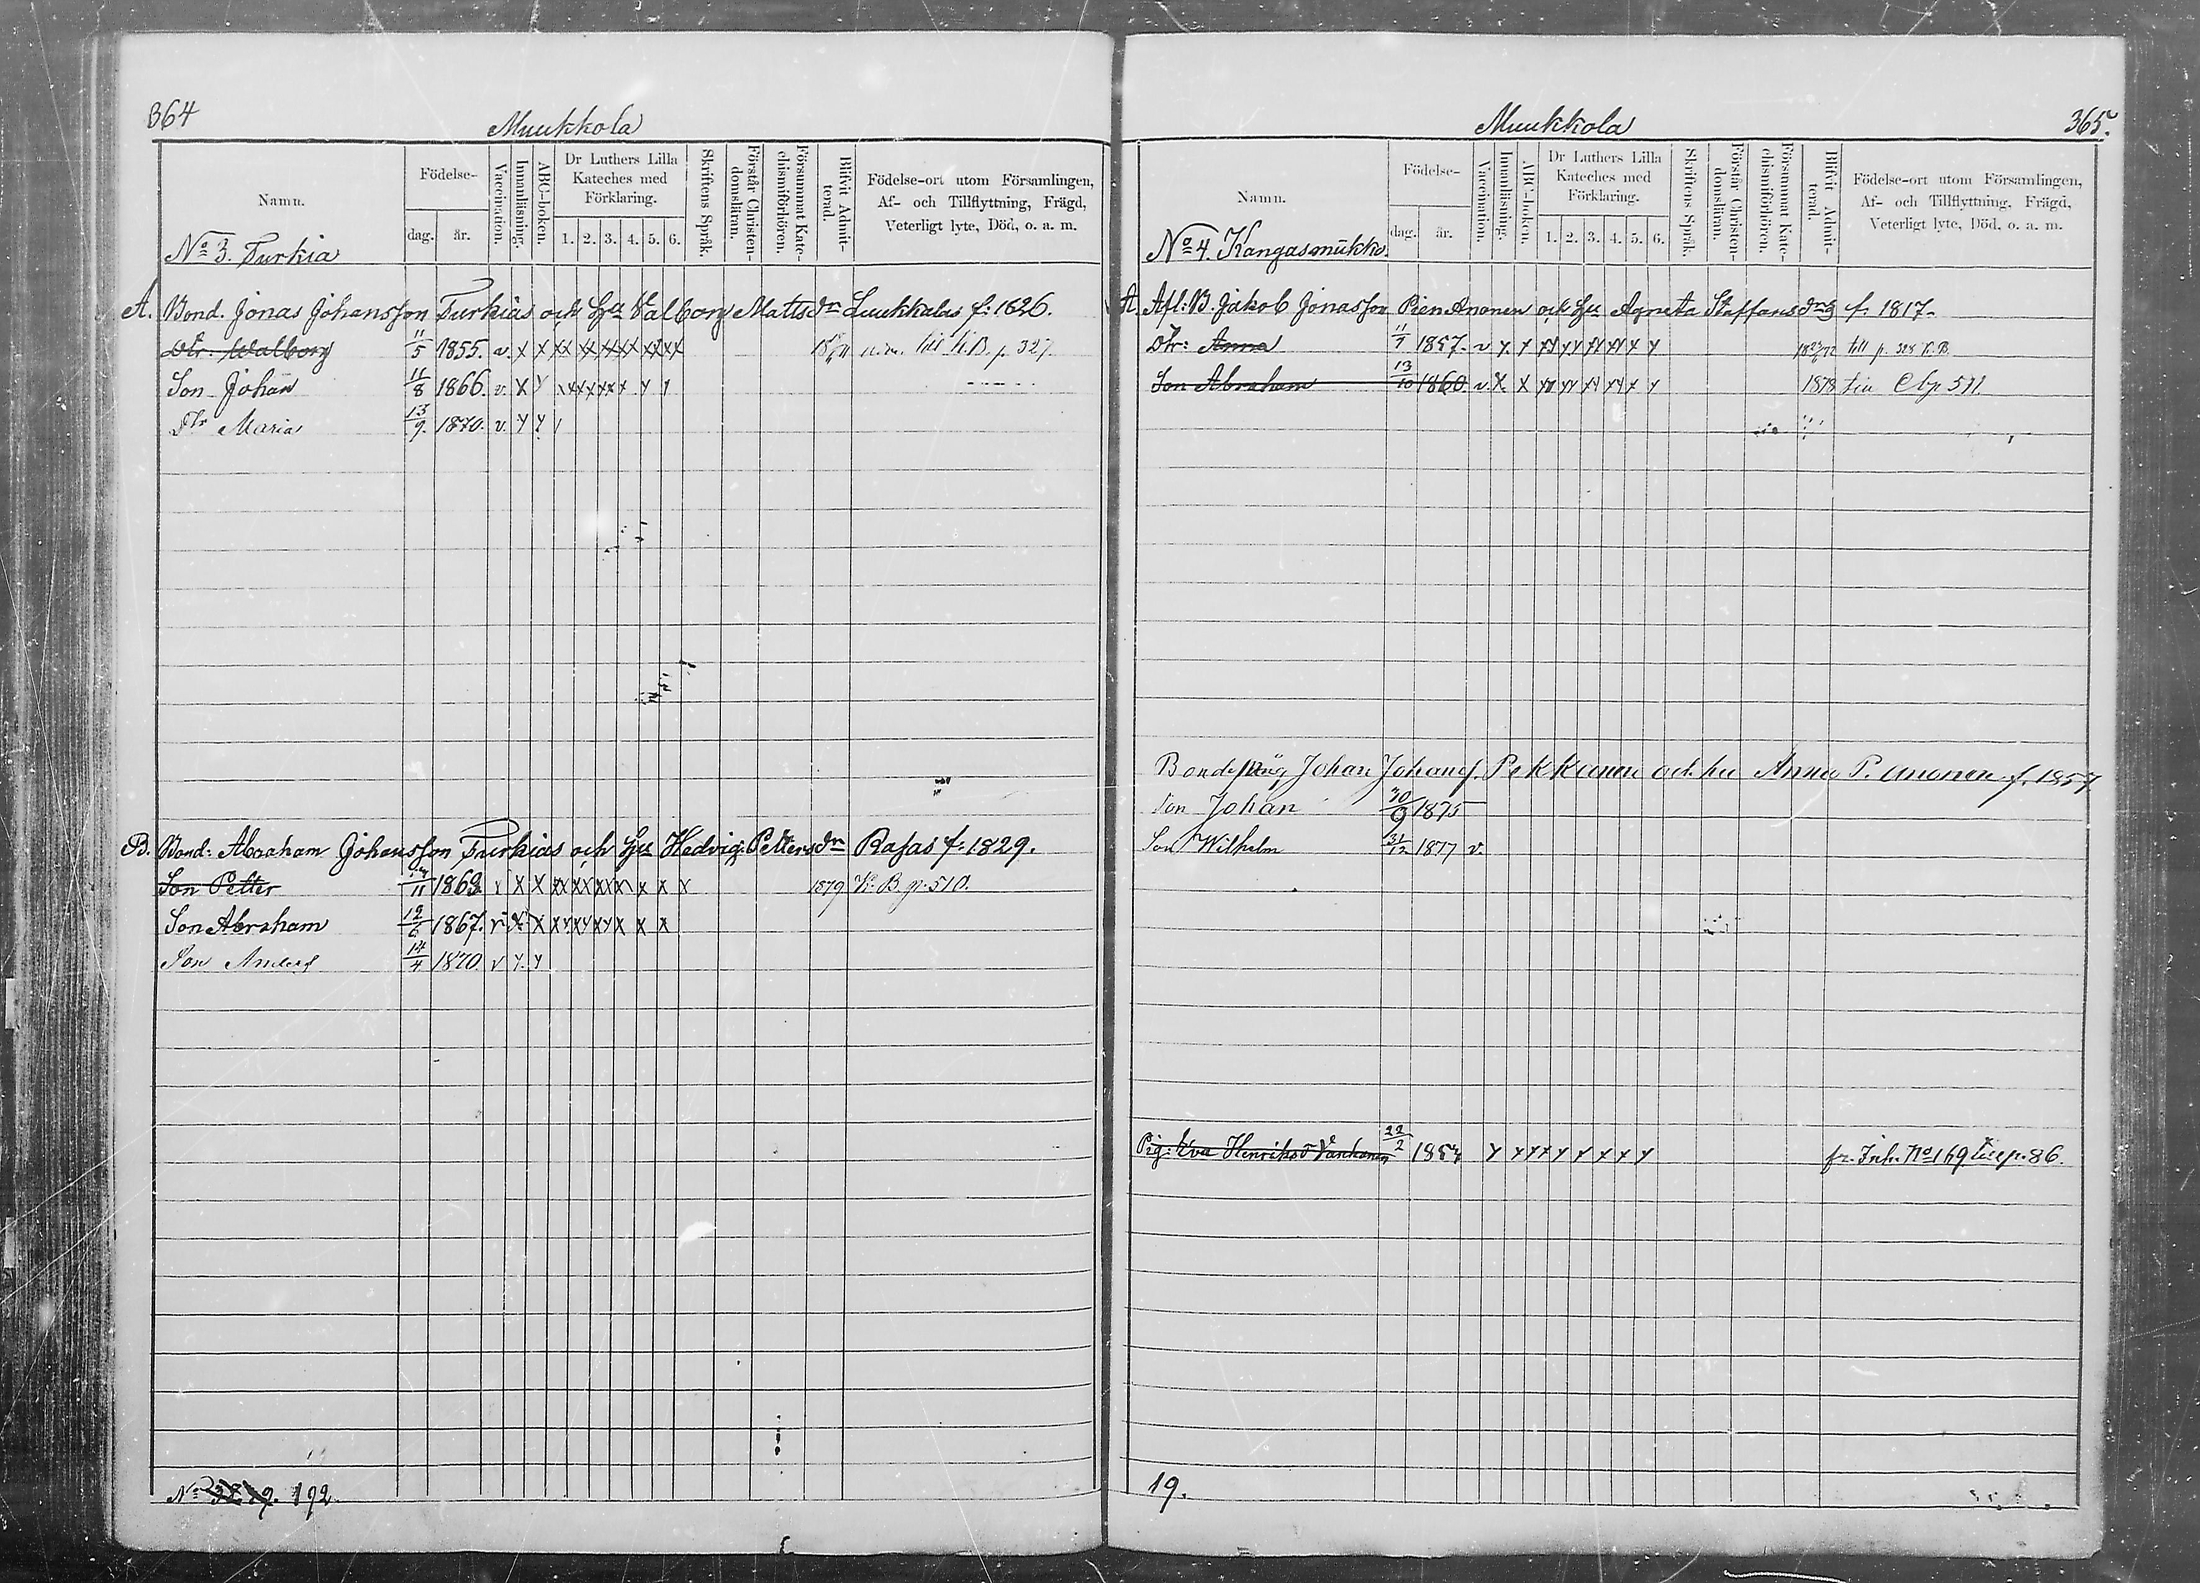 364
Muukkola
Namn.
Födelse-
dag.
år.
Vaccination.
Innanläsning.
ABC-boken.
Dr Luthers Lilla
Kateches med
Förklaring.
1. 2. 3. 4. 5. 6.
Skriftens Språk.
Förstår Christen-
domsläran.
Försummat Kate-
chismiförhören.
Blifvit Admit-
terad.
Födelse-ort utom Församlingen,
Af- och Tillflyttning, Frägd,
Veterligt lyte, Död, o. a. m.
No 3. Turkia
A. Bond. Jonas Johansson Turkias och Hu Valborg Mattsdr Luukkalas f: 1826.
Dtr. Walborg 11/5 1855. v. x x xx xx xx xx xx till K.B. p. 327.
Son Johan 11/8 1866. v. x y
Dtr Maria 13/9. 1870. v. y y
B. Bond: Abraham Johansson Turkias och Hu Hedvig Pettersdr Rajas f: 1829.
Son Petter /11 1863 v x x 1879 K. B. p. 510.
Son Abraham 12/6 1867. v x x
Son Anders 14/4 1870. v y. y
No 192
Muukkola
365.
Namn.
Födelse-
dag.
år.
Vaccination.
Innanläsning.
ABC-boken.
Dr Luthers Lilla
Kateches med
Förklaring.
1. 2. 3. 4. 5. 6.
Skriftens Språk.
Förstår Christen-
domsläran.
Försummat Kate-
chismiförhören.
Blifvit Admit-
terad.
Födelse-ort utom Församlingen,
Af- och Tillflyttning, Frägd,
Veterligt lyte, Död, o. a. m.
No 4. Kangasmukko.
A. Afl: B. Jakob Jonasson PienAnonen och Hu Agneta Staffansdr f. 1817.
Dtr: Anna 11/1 1857. v y. y till p. 328 K. B.
Son Abraham 13/10 1860. v. x x 1878 C bp 511
Johan Johans. Pekkanen och hu Anna P. Anonen f. 1857
Son Johan 30/9 1875
Son Wilhelm 31/12 1877 v.
Pig: Eva Henriksd Vanhanen 22/2 fr. Inh. No 169 p. 86.
19.